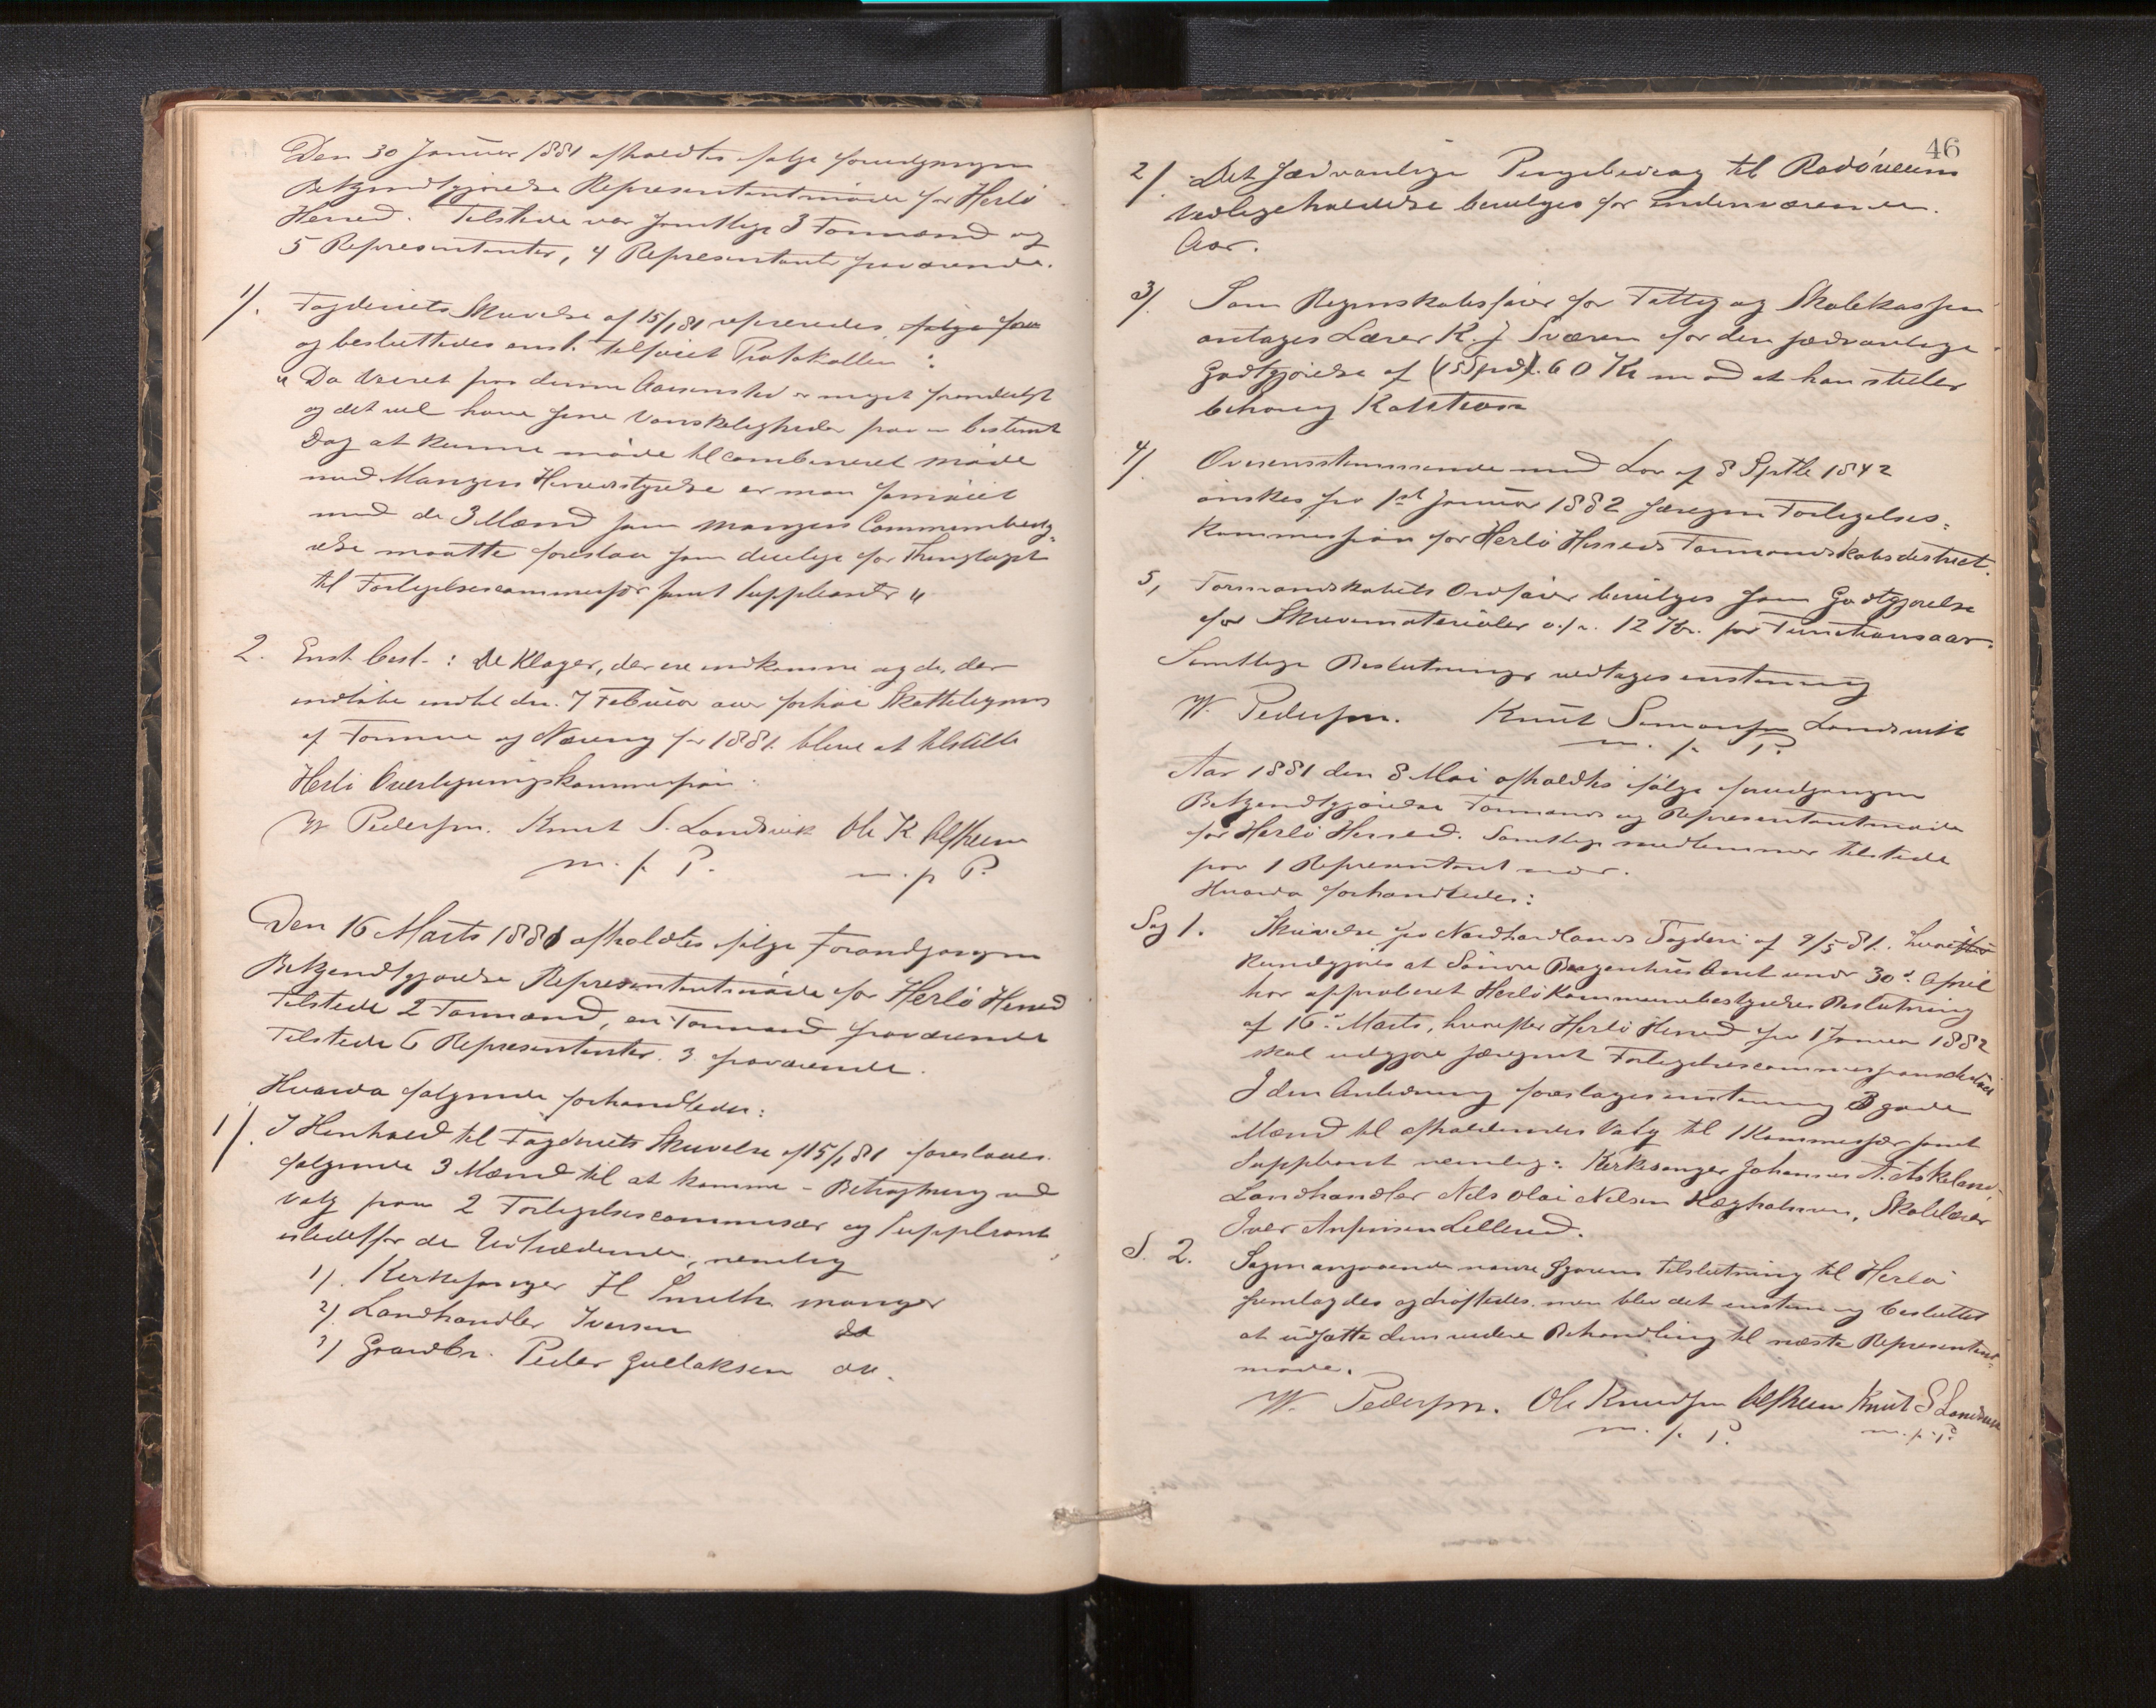 Den 30 Januar 1881 afholdtes følge forudgangen
Bekjendtgjørelse Representantmøde for Herlø
Herred. Tilstede var samtlige 3 Formænd og
5 Representanter, 4 Representanter fraværende.
1/. Fogderiets Skrivelse af 15/1 81 refereredes, følge fore
og besluttedes enst. tilføiet Protokollen:
"Da Veiret paa denne Aarenstid er meget foranderligt
og det vil have sine Vanskeligheder paa en bestemt
Dag at kunne møde til combineret Møde
med Mangers Herredsstyrelse er man fornøiet
med de 3 Mænd som Mangers Communebesty¬
relse maatte foreslaa som duelige for Thinglaget
til Forligelsescommissær samt Suppleanter"
2. Enst. besl.: De Klager, der ere indkomne og de, der
indløbe indtil den 7 Februar over forhøi Skatteligning
af Formue og Næring for 1881 blive at tilstille
Herlø Overligningskommission.
W Pedersen. Knut S. Landsvik Ole K Ulfsteen
m. p. P. m. p P.
Den 16 Marts 1881 afholdtes følge Forandgangen
Bekjendtgjørelse Representantmøde for Herlø Herred
Tilstede 2 Formænd, en Formand fraværende
Tilstede 6 Representanter. 3 fraværende.
Hvorda følgende forhandledes:
1/. I Henhold til Fogderiets Skrivelse af 15/1 81 foreslaaes
følgende 3 Mænd til at komme i Betragtning ved
Valg paa 2 Forligelsescommissær og Suppleant
istedetfor de Udtrædende, nemlig
1/. Kirkesanger H Smith Manger
2/. Landhandler Iversen do
3/ Gaardbr. Peder Gullaksen do.
46
2/. Det sædvanlige Pengebidrag til Radøveiens
Vedligeholdelse bevilges for indeværende
Aar.
3/. Som Regnskabsfører for Fattig og Skolekassen
antages Lærer K. J Sværen for den sædvanlige
Godtgjørelse af (15 Spd). 60 Kr mod at han stiller
behørig Kaution
4/. Overensstemmende med Lov af 8 Septbr 1842
ønskes fra 1st Januar 1882 særegen Forligelses=
kommission for Herlø Herreds Formandskabsdistrict.
5, Formandskabets Ordfører bevilges som Godtgjørelse
for Skrivematerialer o.s.v. 12 Kr. pr Functionsaar.
Samtlige Beslutninger vedtoges enstemmig
W. Pedersen. Knut Simonsen Landsvik
m. p. P.
Aar 1881 den 8 Mai afholdtes følge forudgangen
Bekjendtgjørelse Formands og Representantmøde
for Herlø Herred. Samtlige medlemmer tilstede
paa 1 Representant nær.
Hvorda forhandledes:
Sag 1. Skrivelse fra Nordhordlands Fogderi af 9/5 81. hvori
kundgjøres at Søndre Bergenhus Amt under 30. April
har approberet Herlø Kommunebestyrelses Beslutning
af 16. Marts, hvorefter Herlø Herred fra 1 Januar 1882
skal udgjøre særegent Forligelsescommissionsdistrict
I den Anledning foreslages enstemmig 3 gode
Mænd til afholdendes Valg til 1 Kommissær samt
Suppleant nemlig: Kirkesanger Johannes A. Askeland,
Landhandler Nels Olai Nelsen Hægholmen, Skolelærer
Iver Anfinsen Lillerud.
S. 2. Sagen angaaende Tilslutning til Herlø
fremlagdes og drøftedes, men blev det enstemmig besluttet
at udsætte dens videre Behandling til næste Representant=
møde.
W. Pedersen. Ole Knudsen Ulfsteen Knut S Landsvik
m. p. P. m. p. P.